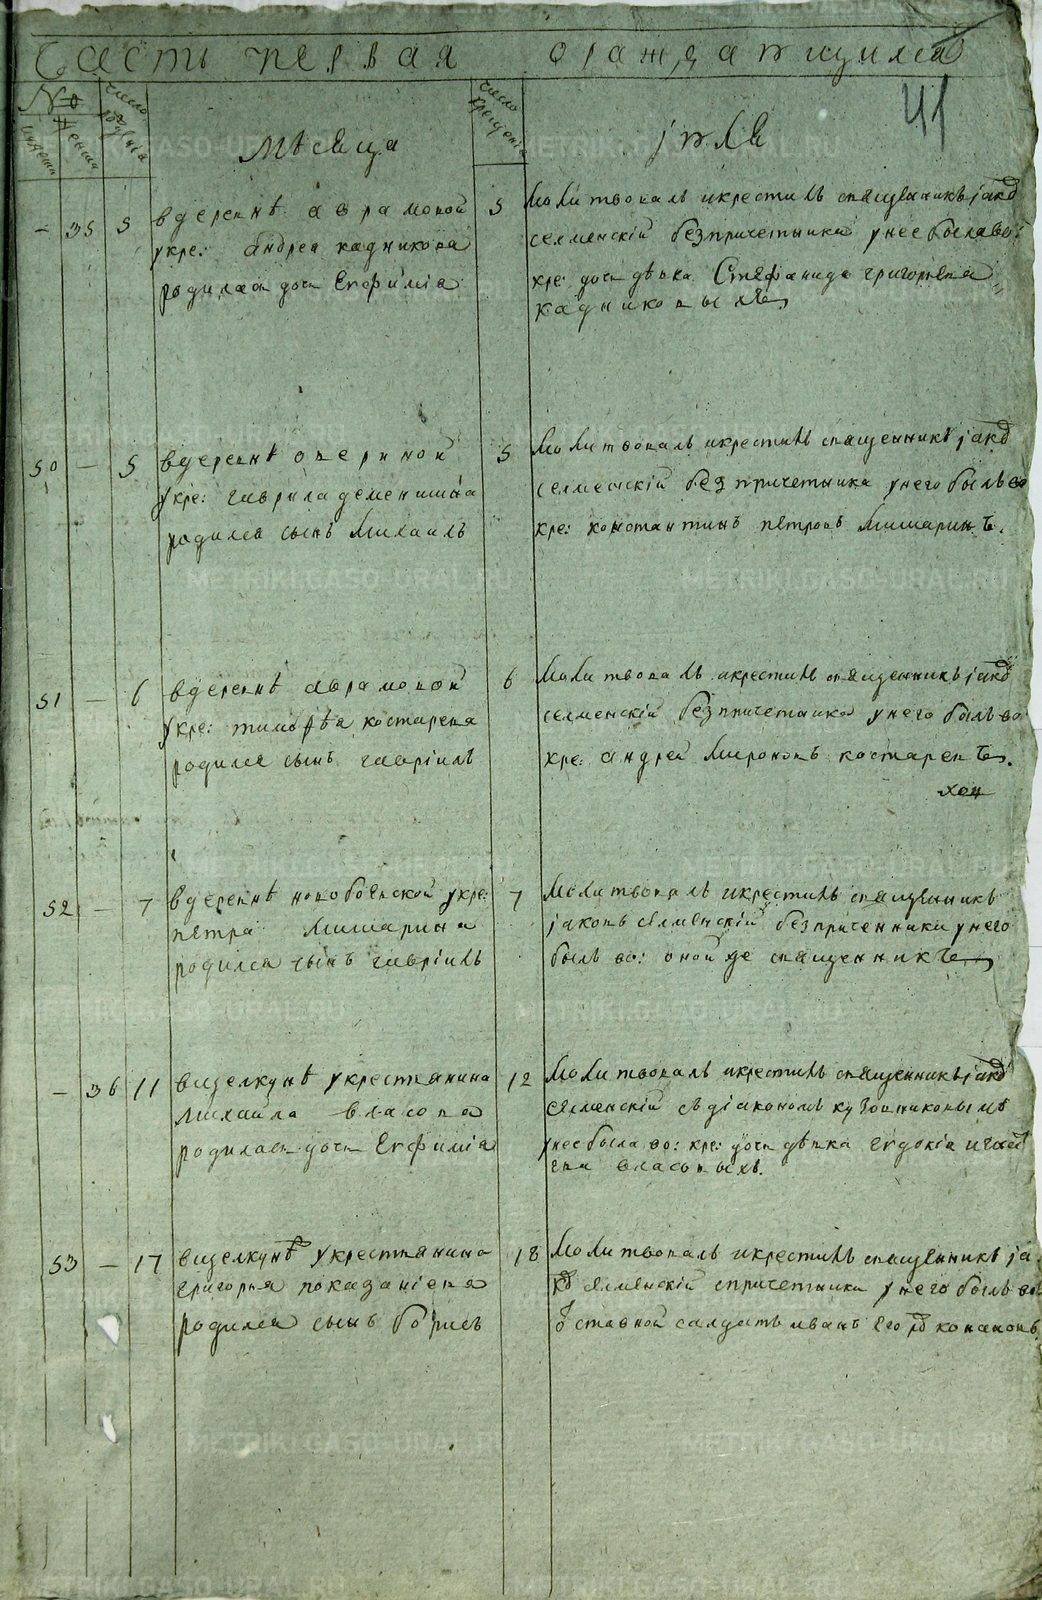 Часть первая о раждающихся
41
№
мужска
женска
число рождения
Месяца
число крещения
июля
— 35 5 в деревнѣ аврамовой
укре: андрея кадникова
родилась дочь Евфимїа
5 молитвовалъ и крестилъ священникъ јаков
селменскїй без причетника у нее была во:
кре: дочь дѣвка Стефанида григорьева
кадниковыхъ
50 — 5 в деревнѣ овериной
укре: гаврила деменшина
родился сынъ михаилъ
5 молитвовалъ и крестилъ священникъ јаков
селменскїй без причетника у него былъ во
кре: константинъ петровъ мишаринъ.
51 — 6 в деревнѣ аврамовой
укре: тимофѣа костарева
родился сынъ гаврїилъ
6 молитвовалъ и крестилъ священникъ јаков
селменскїй без причетника у него былъ во
кре: андрей мироновъ костаревъ.
52 — 7 в деревнѣ новобоевской укре:
петра мишарина
родился сынъ гаврїилъ
7 молитвовалъ и крестилъ священникъ
јаковъ селменскїй без причетника у него
былъ во: оной же священникъ
— 36 11 в щелкунѣ у крестьянина
михаила власова
родилась дочь Евфимїа
12 молитвовалъ и крестилъ священникъ јаков
селменскїй съ дїакономъ кузовниковымъ
у нее была во: кре: дочь дѣвка евдокїа игнать
ева власовыхъ.
53 — 17 в щелкунѣ у крестьянина
григорья показанїева
родился сынъ борисъ
18 молитвовалъ и крестилъ священникъ ја
ков селменскїй с причетники у него былъ во
отставной салдатъ иванъ егоров канановъ